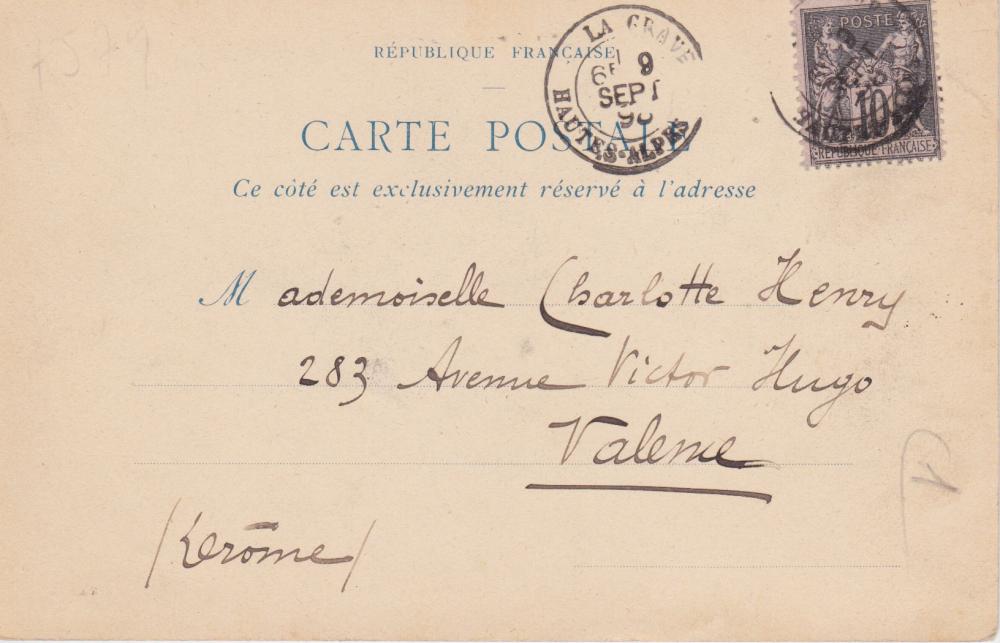 RÉPUBLIQUE FRANÇAISE
CARTE POSTALE
Ce côté est exclusivement réservé à l'adresse
LA GRAVE
6E 9
SEPT
HAUTES-ALPES
POSTE
10
RÉPUBLIQUE FRANÇAISE
Mademoiselle Charlotte Henry
283 Avenue Victor Hugo
Valence
(Drôme)
1